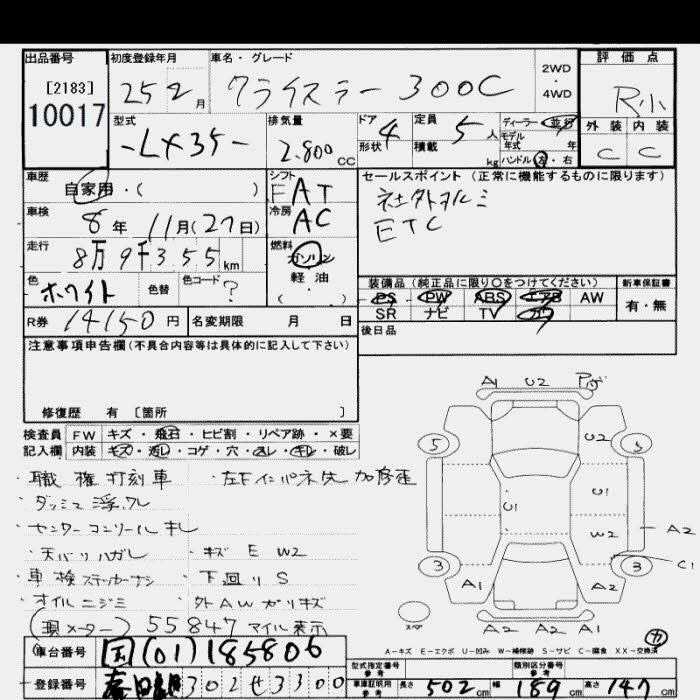 出品番号 初度登録年月 車名・グレード 2WD・4WD 評価点
[2183]
10017 25 2月 クライスラー 300C R小
型式 排気量 ドア形状 定員 積載 ディーラー・並行 外装 内装
-LX35- 2.800cc 4 5人 kg モデル年式 年 ハンドル 左・右 C C
車歴 シフト セールスポイント(正常に機能するものに限ります)
自家用・( ) FAT 社外アルミ
車検 冷房 ETC
8年 11月(27日) AC
走行 燃料
8万9千355km ガソリン
色 色替 色コード 軽油 装備品(純正品に限り〇をつけてください) 新車保証書
ホワイト ? ・( ) PS PW ABS エアB AW 有・無
R券 14150円 名変期限 月 日 SR ナビ TV カワ
注意事項申告欄(不具合内容等は具体的に記入して下さい) 後日品
修復歴 有 [箇所 ]
検査員 FW キズ・飛石・ヒビ割・リペア跡・×要
記入欄 内装 キズ・汚レ・コゲ・穴・スレ・キレ・破レ
・職権打刻車 ・左Fインパネ先加修歪
・ダッシュ浮,クレ
・センターコンソールキレ
・天バリハガレ ・キズ E W2
・車検ステッカーナシ ・下回リS
・オイルニジミ ・外AWガリキズ
(現メーター) 55847マイル表示
A1 U2
5 U2 5
U1 U1
W2 A2
3 3 C1
A1 A2
スペ A2 A2 A1
A-キズ E-エクボ U-凹み W-補修跡 S-サビ C-腐食 XX-交換済
車台番号 国(01)185806
登録番号 春日部302せ3300
型式指定番号 参考 類別区分番号 参考
車庫証明用 参考 長さ 502cm 幅 189cm 高さ 147cm